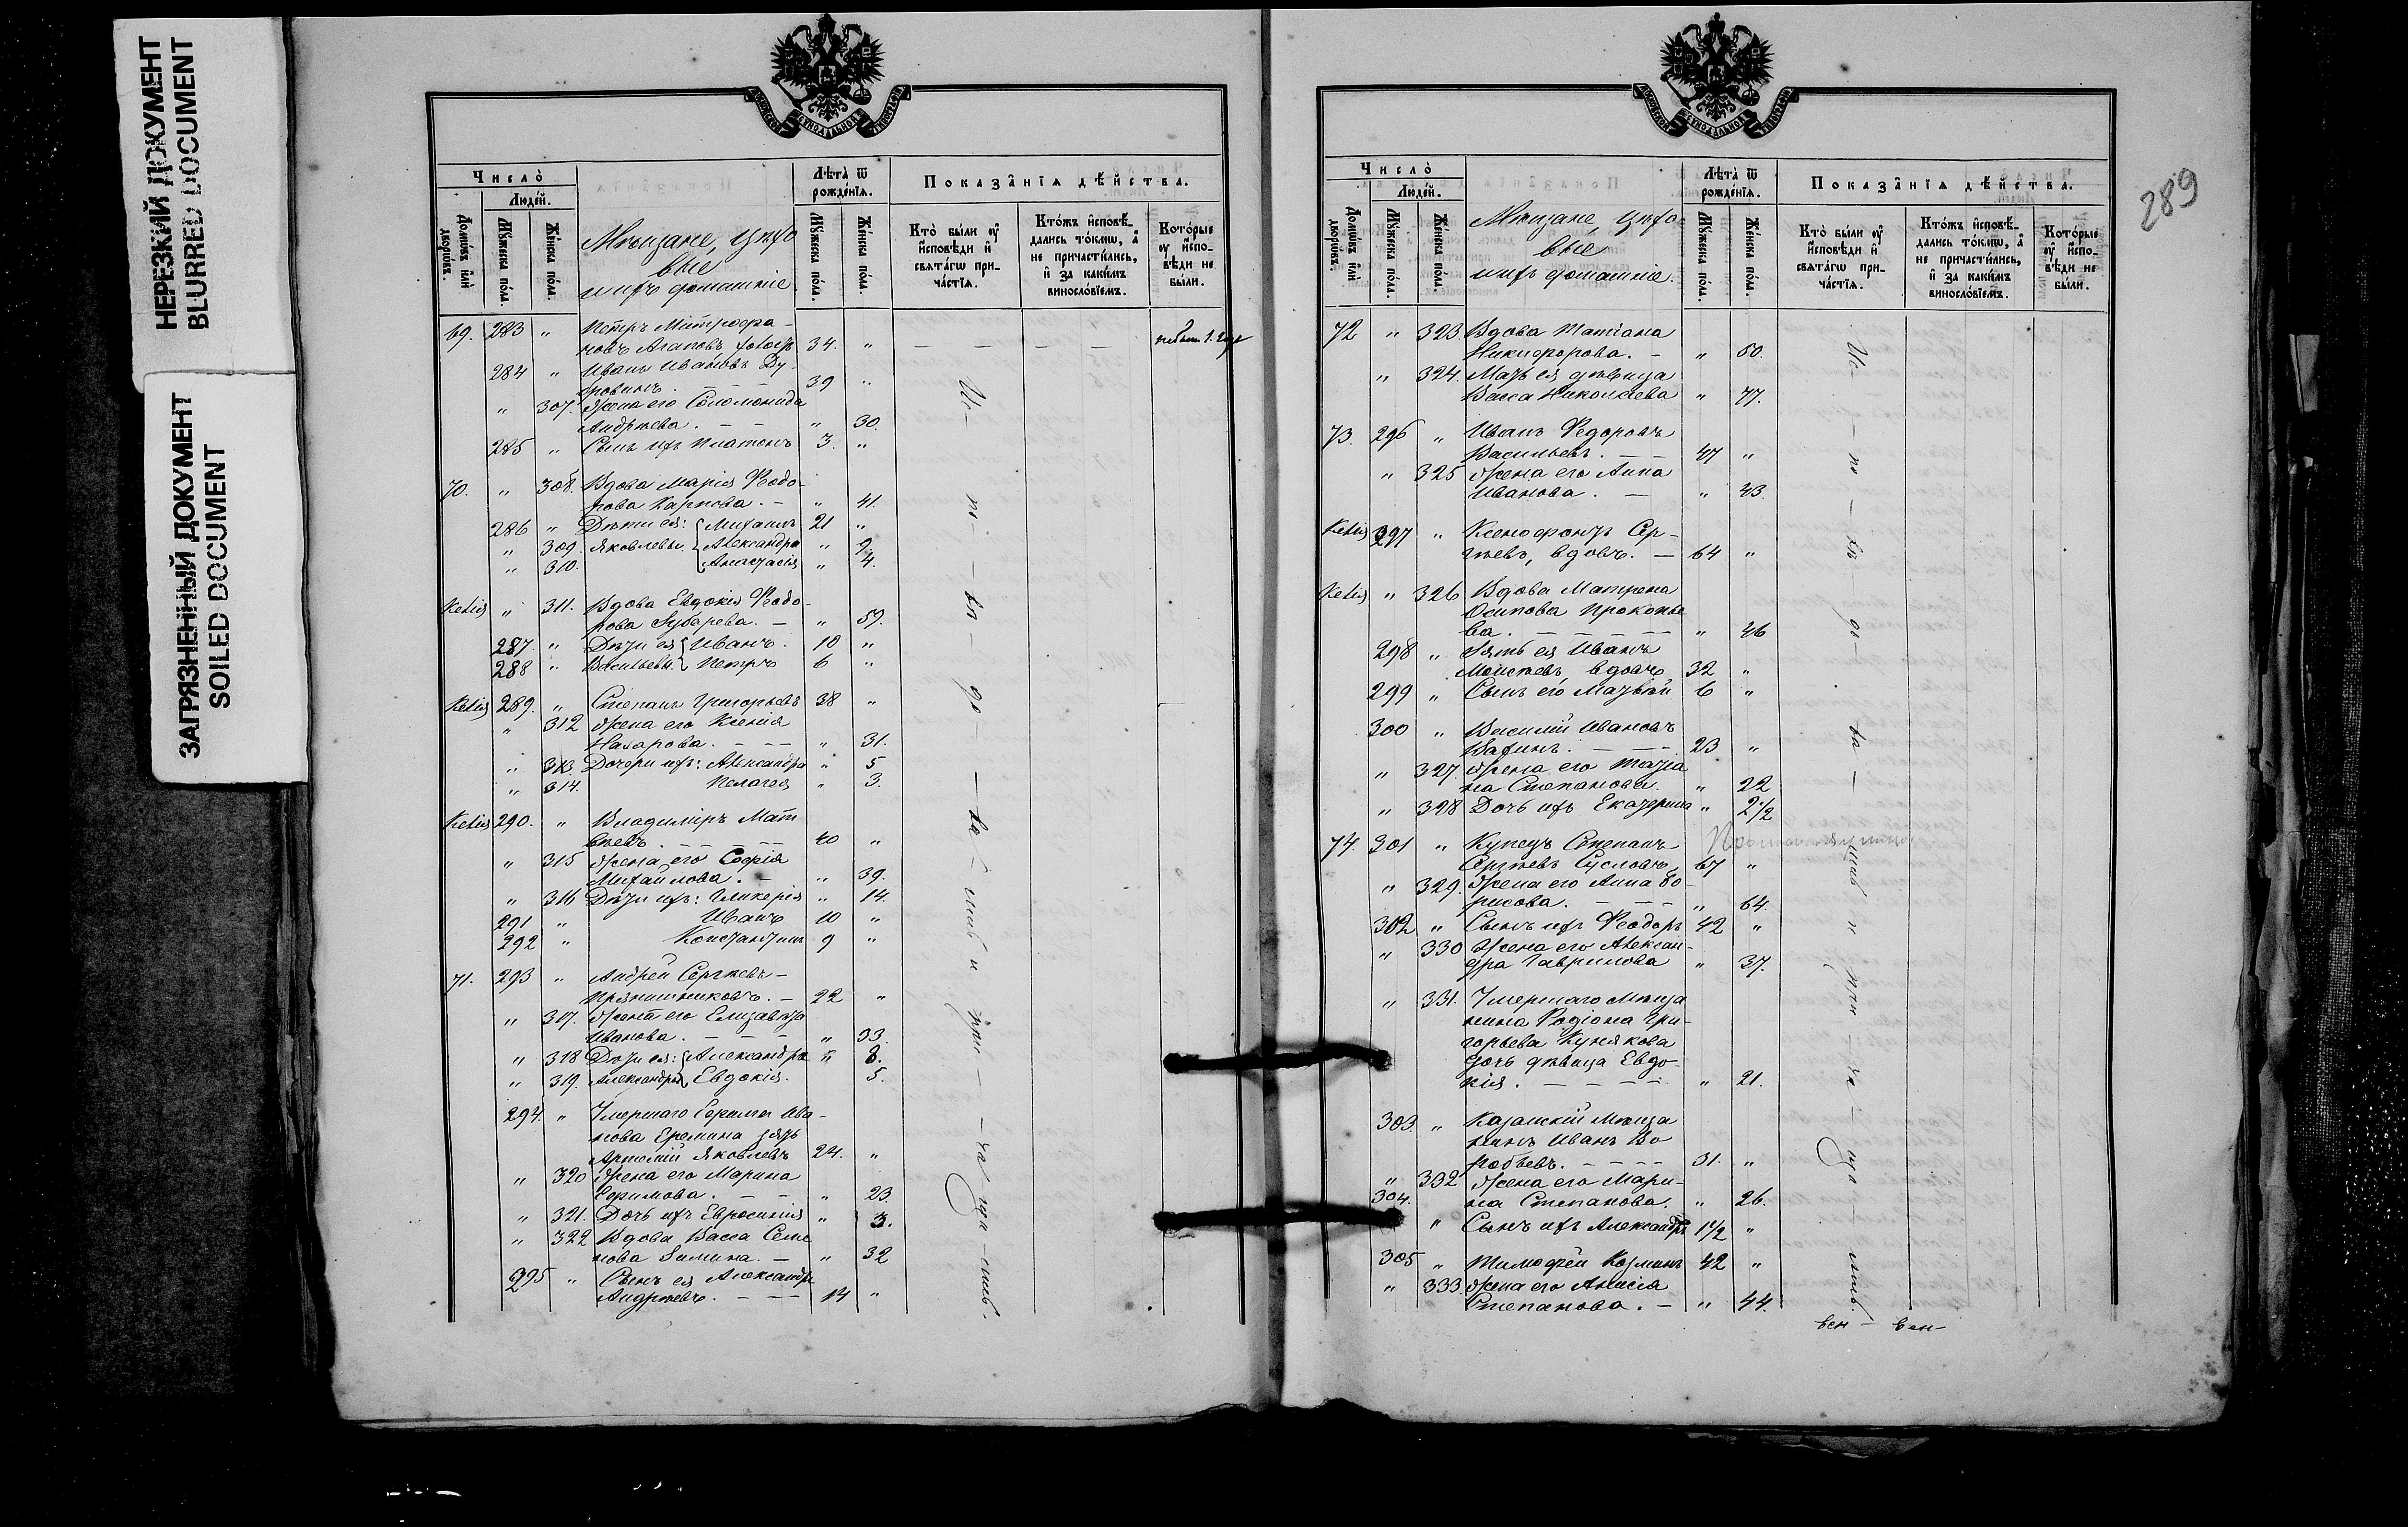 НЕРЕЗКИЙ ДОКУМЕНТ
BLURRED DOCUMENT
ЗАГРЯЗНЕННЫЙ ДОКУМЕНТ
SOILED DOCUMENT
МОСКОВСКОЙ СѴНОДАЛЬНОЙ ТИПОГРАФІИ
Число̀
Люде́й.
Домѡ́въ и҆лѝ дворѡ́въ.
Мꙋ́жеска по́ла.
Же́нска по́ла.
Мѣщане, цѣхо
вые
и ихъ домашніе
Лѣ́та ѿ рожде́нїѧ.
Мꙋ́жеска по́ла.
Же́нска по́ла.
Показа̂нїѧ дѣ́йства.
Кто̀ бы́ли ᲂу҆ и҆сповѣ́ди и҆ свѧта́гѡ прича́стїѧ.
Кто́жъ и҆сповѣ́дались то́кмѡ, а҆ не причасти́лись, и҆ за каки́мъ винослові́емъ.
Кото́рые ᲂу҆ и҆спо́вѣди не бы́ли.
69. 283 " Петръ Митрофа-
новъ Агаповъ 34. " — — — —
284 " Иванъ Ивановъ Ду-
бровинъ. 39 "
" 307. Жена его Соломонида
Андреева. — — " 30.
285 " Сынъ ихъ Платонъ 3. "
70. " 308. Вдова Марія Ѳеодо-
рова Карпова. — " 41.
286 " Дѣти ея: Михаилъ 21 "
" 309. Яковлевы. Александра " 9.
" 310. Анастасія " 4.
Келія " 311. Вдова Евдокія Ѳеодо-
рова Зубарева. — " 59.
287. " Дѣти ея Иванъ. 10 "
288 " Васильевы. Петръ 6 "
Келія 289. " Степанъ Григорьевъ 38 "
" 312 Жена его Ксенія
Назарова. — — " 31.
" 313. Дочери ихъ: Александра " 5
" 314. Пелагея " 3.
Келія 290. " Владиміръ Мат
вѣевъ. — — 40 "
" 315 Жена его Софія
Михайлова. — " 39.
" 316 Дѣти ихъ: Гликерія " 14.
291 " Иванъ 10 "
292 " Константинъ 9 "
71. 293 " Андрей Сергѣевъ —
Прянишниковъ. — 22 "
" 317. Жена его Елизавета
Иванова. — — — " 33.
" 318 Дѣти ея: Александра " 8.
" 319. Александровы Евдокія. 5.
294. " Умершаго Ефима Ива-
нова Еремина зять
Артемій Яковлевъ 24. "
" 320 Жена его Марина
Ефимова. — — " 23.
" 321. Дочь ихъ Евросинія " 3.
" 322 Вдова Васса Семе
нова Зимина. — " 32
295 " Сынъ ея Александръ
Андреевъ. — — 14 "
Ис — по — вѣ — до — ва — лись и при — ча ща — лись.
289
Число̀
Люде́й.
Домѡ́въ и҆лѝ дворѡ́въ.
Мꙋ́жеска по́ла.
Же́нска по́ла.
Мѣщане, цѣхо-
вые
и ихъ домашніе.
Лѣ́та ѿ рожде́нїѧ.
Мꙋ́жеска по́ла.
Же́нска по́ла.
Показа̂нїѧ дѣ́йства.
Кто̀ бы́ли ᲂу҆ и҆сповѣ́ди и҆ свѧта́гѡ прича́стїѧ.
Кто́жъ и҆сповѣ́дались то́кмѡ, а҆ не причасти́лись, и҆ за каки́мъ винослові́емъ.
Кото́рые ᲂу҆ и҆спо́вѣди не бы́ли.
72 " 323. Вдова Татіана
Никифорова. — " 50.
" 324. Мать ея дѣвица
Васса Николаева " 77.
73. 296 " Иванъ Ѳедоровъ
Васильевъ. — — 47 "
" 325 Жена его Анна
Иванова. — " 43.
Келія 297 " Ксенофонтъ Сер-
гѣевъ, вдовъ. — 64 "
Келія " 326 Вдова Матрена
Осипова Прокопье
ва. — — — — " 46
298 " Зять ея Иванъ
Моисѣевъ вдовъ 32 "
299 " Сынъ его Матвѣй 6 "
300 " Василій Ивановъ
Вагинъ. — — — 23 "
" 327. Жена его Татіа
на Степанова. " 22
" 328 Дочь ихъ Екатерина " 2 1/2
74. 301 " Купецъ Степанъ
Сергѣевъ Сусловъ 67 "
" 329. Жена его Анна Бо-
рисова. — — — " 64.
302 " Сынъ ихъ Ѳеодоръ 42 "
" 330 Жена его Алексан-
дра Гаврилова " 37.
" 331. Умершаго мѣща
нина Родіона Гри-
горьева Кунякова
дочь дѣвица Евдо-
кія. — — — — " 21.
303. " Казанскій мѣща
нинъ Иванъ Во
робьевъ. — — — 31. "
" 332 Жена его Мари-
на Степанова. " 26.
304. " Сынъ ихъ Александръ 1 1/2 "
305 " Тимофей Козминъ 42 "
" 333. Жена его Анисія
Степанова. — " 44.
Ис — по — вѣ — до — ва — лись и при — ча — ща — лись.
вен — вен —